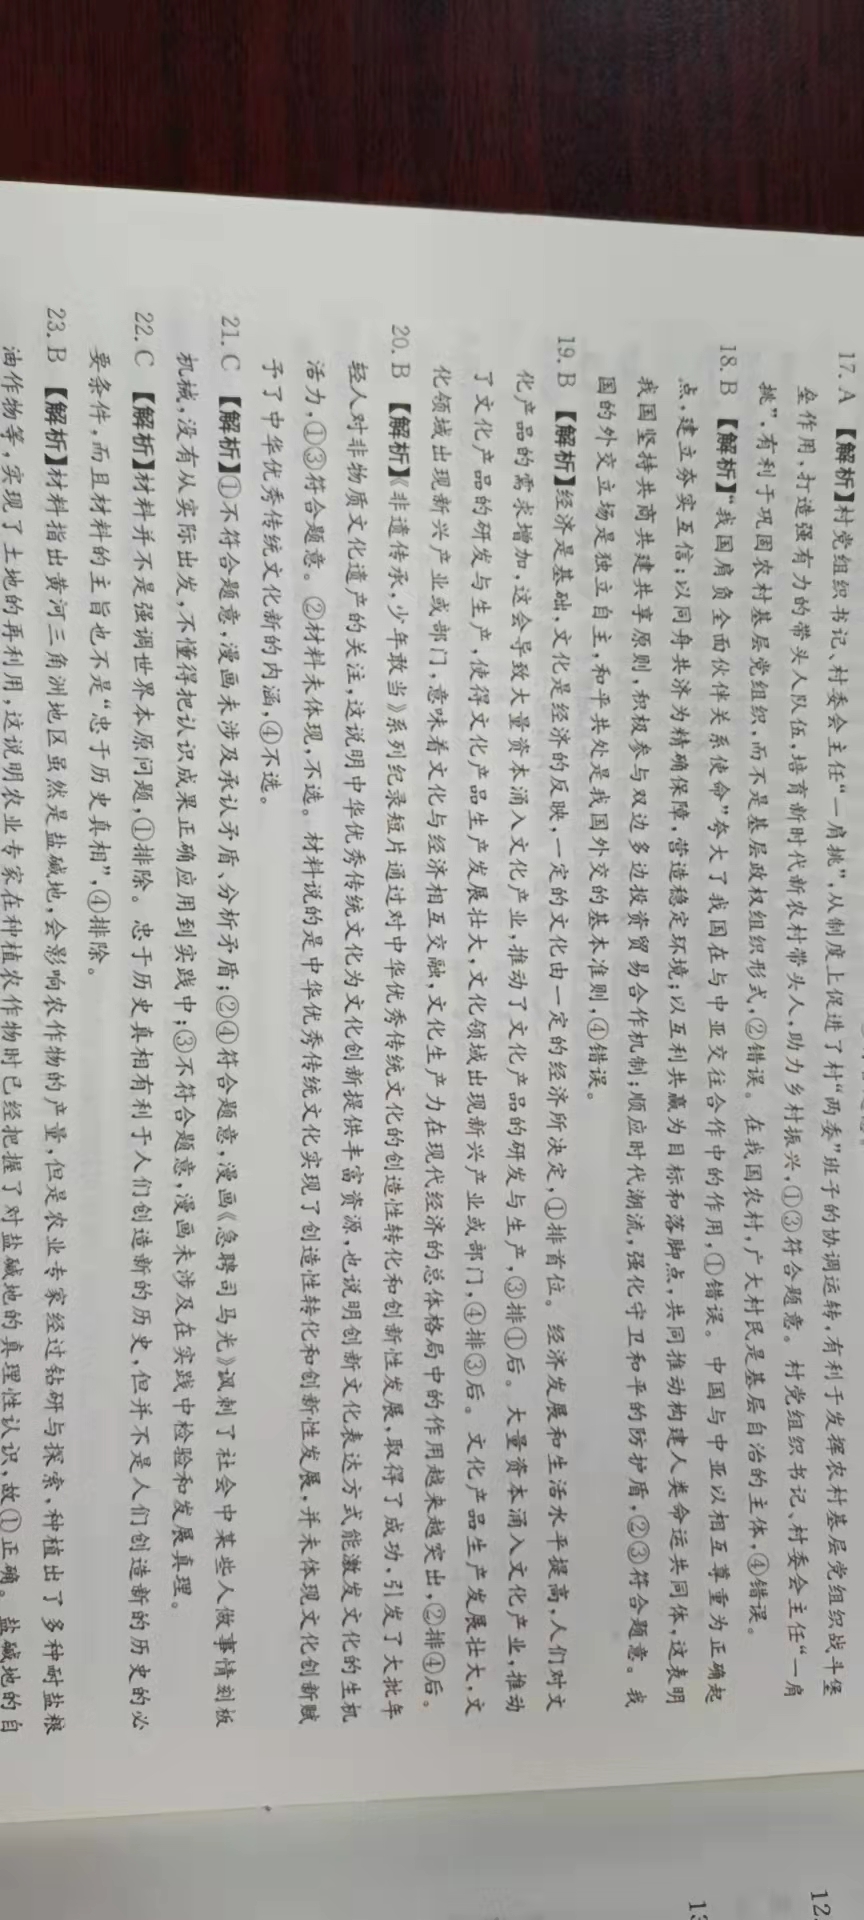 17. A 【解析】村党组织书记、村委会主任“一肩挑”,从制度上促进了村“两委”班子的协调运转,有利于发挥农村基层党组织战斗堡
垒作用,打造强有力的带头人队伍,培育新时代新农村带头人,助力乡村振兴,①③符合题意。村党组织书记、村委会主任“一肩
挑”,有利于巩固农村基层党组织,而不是基层政权组织形式,②错误。在我国农村,广大村民是基层自治的主体,④错误。
18. B 【解析】“我国肩负全面伙伴关系使命”夸大了我国在与中亚交往合作中的作用,①错误。中国与中亚以相互尊重为正确起
点,建立夯实互信;以同舟共济为精确保障,营造稳定环境;以互利共赢为目标和落脚点,共同推动构建人类命运共同体,这表明
我国坚持共商共建共享原则,积极参与双边多边投资贸易合作机制;顺应时代潮流,强化守卫和平的防护盾,②③符合题意。我
国的外交立场是独立自主,和平共处是我国外交的基本准则,④错误。
19. B 【解析】经济是基础,文化是经济的反映,一定的文化由一定的经济所决定,①排首位。经济发展和生活水平提高,人们对文
化产品的需求增加,这会导致大量资本涌入文化产业,推动了文化产品的研发与生产,③排①后。大量资本涌入文化产业,推动
了文化产品的研发与生产,使得文化产品生产发展壮大,文化领域出现新兴产业或部门,④排③后。文化产品生产发展壮大,文
化领域出现新兴产业或部门,意味着文化与经济相互交融,文化生产力在现代经济的总体格局中的作用越来越突出,②排④后。
20. B 【解析】《非遗传承,少年敢当》系列纪录短片通过对中华优秀传统文化的创造性转化和创新性发展,取得了成功,引发了大批年
轻人对非物质文化遗产的关注,这说明中华优秀传统文化为文化创新提供丰富资源,也说明创新文化表达方式能激发文化的生机
活力,①③符合题意。②材料未体现,不选。材料说的是中华优秀传统文化实现了创造性转化和创新性发展,并未体现文化创新赋
予了中华优秀传统文化新的内涵,④不选。
21. C 【解析】①不符合题意,漫画未涉及承认矛盾、分析矛盾;②④符合题意,漫画《急聘司马光》讽刺了社会中某些人做事情刻板
机械,没有从实际出发,不懂得把认识成果正确应用到实践中;③不符合题意,漫画未涉及在实践中检验和发展真理。
22. C 【解析】材料并不是强调世界本原问题,①排除。忠于历史真相有利于人们创造新的历史,但并不是人们创造新的历史的必
要条件,而且材料的主旨也不是“忠于历史真相”,④排除。
23. B 【解析】材料指出黄河三角洲地区虽然是盐碱地,会影响农作物的产量,但是农业专家经过钻研与探索,种植出了多种耐盐粮
油作物等,实现了土地的再利用,这说明农业专家在种植农作物时已经把握了对盐碱地的真理性认识,故①正确。盐碱地的自
12